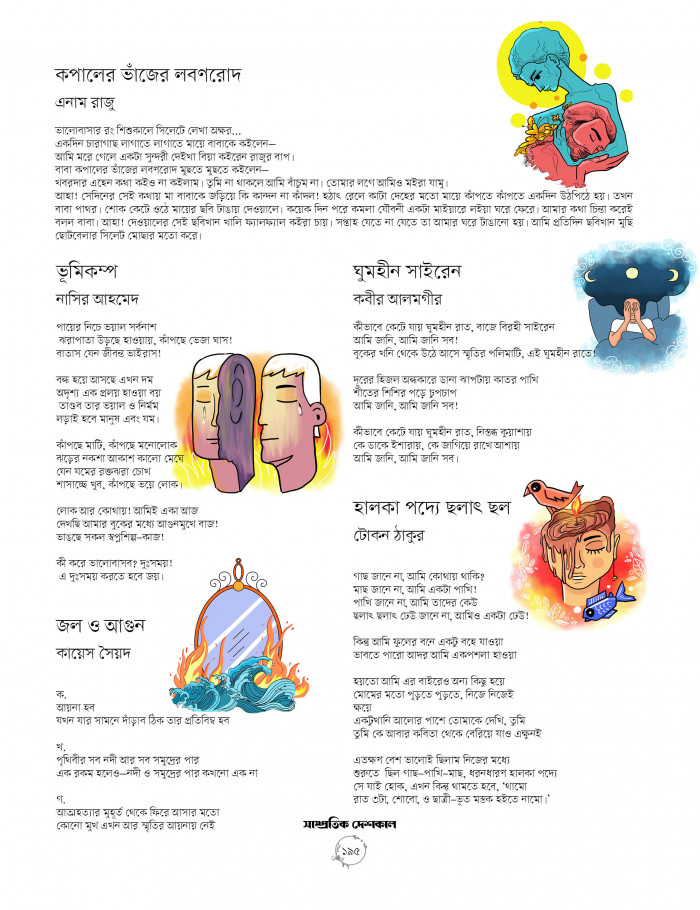 কপালের ভাঁজের লবণরোদ
এনাম রাজু
ভালোবাসার রং শিশুকালে সিলেটে লেখা অক্ষর...
একদিন চারাগাছ লাগাতে লাগাতে মায়ে বাবাকে কইলেন–
আমি মরে গেলে একটা সুন্দরী দেইখা বিয়া কইরেন রাজুর বাপ।
বাবা কপালের ভাঁজের লবণরোদ মুছতে মুছতে কইলেন–
খবরদার এহেন কথা কইও না কইলাম। তুমি না থাকলে আমি বাঁচুম না। তোমার লগে আমিও মইরা যামু।
আহা! সেদিনের সেই কথায় মা বাবাকে জড়িয়ে কি কান্দন না কাঁদল! হঠাৎ রেলে কাটা দেহের মতো মায়ে কাঁপতে কাঁপতে একদিন উঠপিঠে হয়। তখন
বাবা পাথর। শোক কেটে ওঠে মায়ের ছবি টাঙায় দেওয়ালে। কয়েক দিন পরে কমলা যৌবনী একটা মাইয়ারে লইয়া ঘরে ফেরে। আমার কথা চিন্তা করেই
বলল বাবা। আহা! দেওয়ালের সেই ছবিখান খালি ফ্যালফ্যাল কইরা চায়। সপ্তাহ যেতে না যেতে তা আমার ঘরে টাঙানো হয়। আমি প্রতিদিন ছবিখান মুছি
ছোটবেলার সিলেট মোছার মতো করে।
ভূমিকম্প
নাসির আহমেদ
পায়ের নিচে ভয়াল সর্বনাশ
ঝরাপাতা উড়ছে হাওয়ায়, কাঁপছে ভেজা ঘাস!
বাতাস যেন জীবন্ত ভাইরাস!
বন্ধ হয়ে আসছে এখন দম
অদৃশ্য এক প্রলয় হাওয়া বয়
তাণ্ডব তার ভয়াল ও নির্মম
লড়াই হবে মানুষ এবং যম।
কাঁপছে মাটি, কাঁপছে মনোলোক
ঝড়ের নকশা আকাশ কালো মেঘে
যেন যমের রক্তঝরা চোখ
শাসাচ্ছে খুব, কাঁপছে ভয়ে লোক।
লোক আর কোথায়! আমিই একা আজ
দেখছি আমার বুকের মধ্যে আগুনমুখে বাজ!
ভাঙছে সকল স্বপ্নশিল্প–কাজ!
কী করে ভালোবাসব? দুঃসময়!
এ দুঃসময় করতে হবে জয়।
জল ও আগুন
কায়েস সৈয়দ
ক.
আয়না হব
যখন যার সামনে দাঁড়াব ঠিক তার প্রতিবিম্ব হব
খ.
পৃথিবীর সব নদী আর সব সমুদ্রের পার
এক রকম হলেও–নদী ও সমুদ্রের পার কখনো এক না
গ.
আত্মহত্যার মুহূর্ত থেকে ফিরে আসার মতো
কোনো মুখ এখন আর স্মৃতির আয়নায় নেই
ঘুমহীন সাইরেন
কবীর আলমগীর
কীভাবে কেটে যায় ঘুমহীন রাত, বাজে বিরহী সাইরেন
আমি জানি, আমি জানি সব!
বুকের খনি থেকে উঠে আসে স্মৃতির পলিমাটি, এই ঘুমহীন রাতে!
দূরের হিজল অন্ধকারে ডানা ঝাপটায় কাতর পাখি
শীতের শিশির পড়ে চুপচাপ
আমি জানি, আমি জানি সব!
কীভাবে কেটে যায় ঘুমহীন রাত, নিস্তব্ধ কুয়াশায়
কে ডাকে ইশারায়, কে জাগিয়ে রাখে আশায়
আমি জানি, আমি জানি সব।
হালকা পদ্যে ছলাৎ ছল
টোকন ঠাকুর
গাছ জানে না, আমি কোথায় থাকি?
মাছ জানে না, আমি একটা পাখি!
পাখি জানে না, আমি তাদের কেউ
ছলাৎ ছলাৎ ঢেউ জানে না, আমিও একটা ঢেউ!
কিন্তু আমি ফুলের বনে একটু বহে যাওয়া
ভাবতে পারো আদর আমি একপশলা হাওয়া
হয়তো আমি এর বাইরেও অন্য কিছু হয়ে
মোমের মতো পুড়তে পুড়তে, নিজে নিজেই
ক্ষয়ে
একটুখানি আলোর পাশে তোমাকে দেখি, তুমি
তুমি কে আবার কবিতা থেকে বেরিয়ে যাও এক্ষুনই
এতক্ষণ বেশ ভালোই ছিলাম নিজের মধ্যে
শুরুতে ছিল গাছ–পাখি–মাছ, ধরনধারণ হালকা পদ্যে
সে যাই হোক, এখন কিন্তু থামতে হবে, ‘থামো
রাত ৩টা, শোবো, ও ছাত্রী–ভূত মস্তক হইতে নামো।’
সাম্প্রতিক দেশকাল
১৯৫